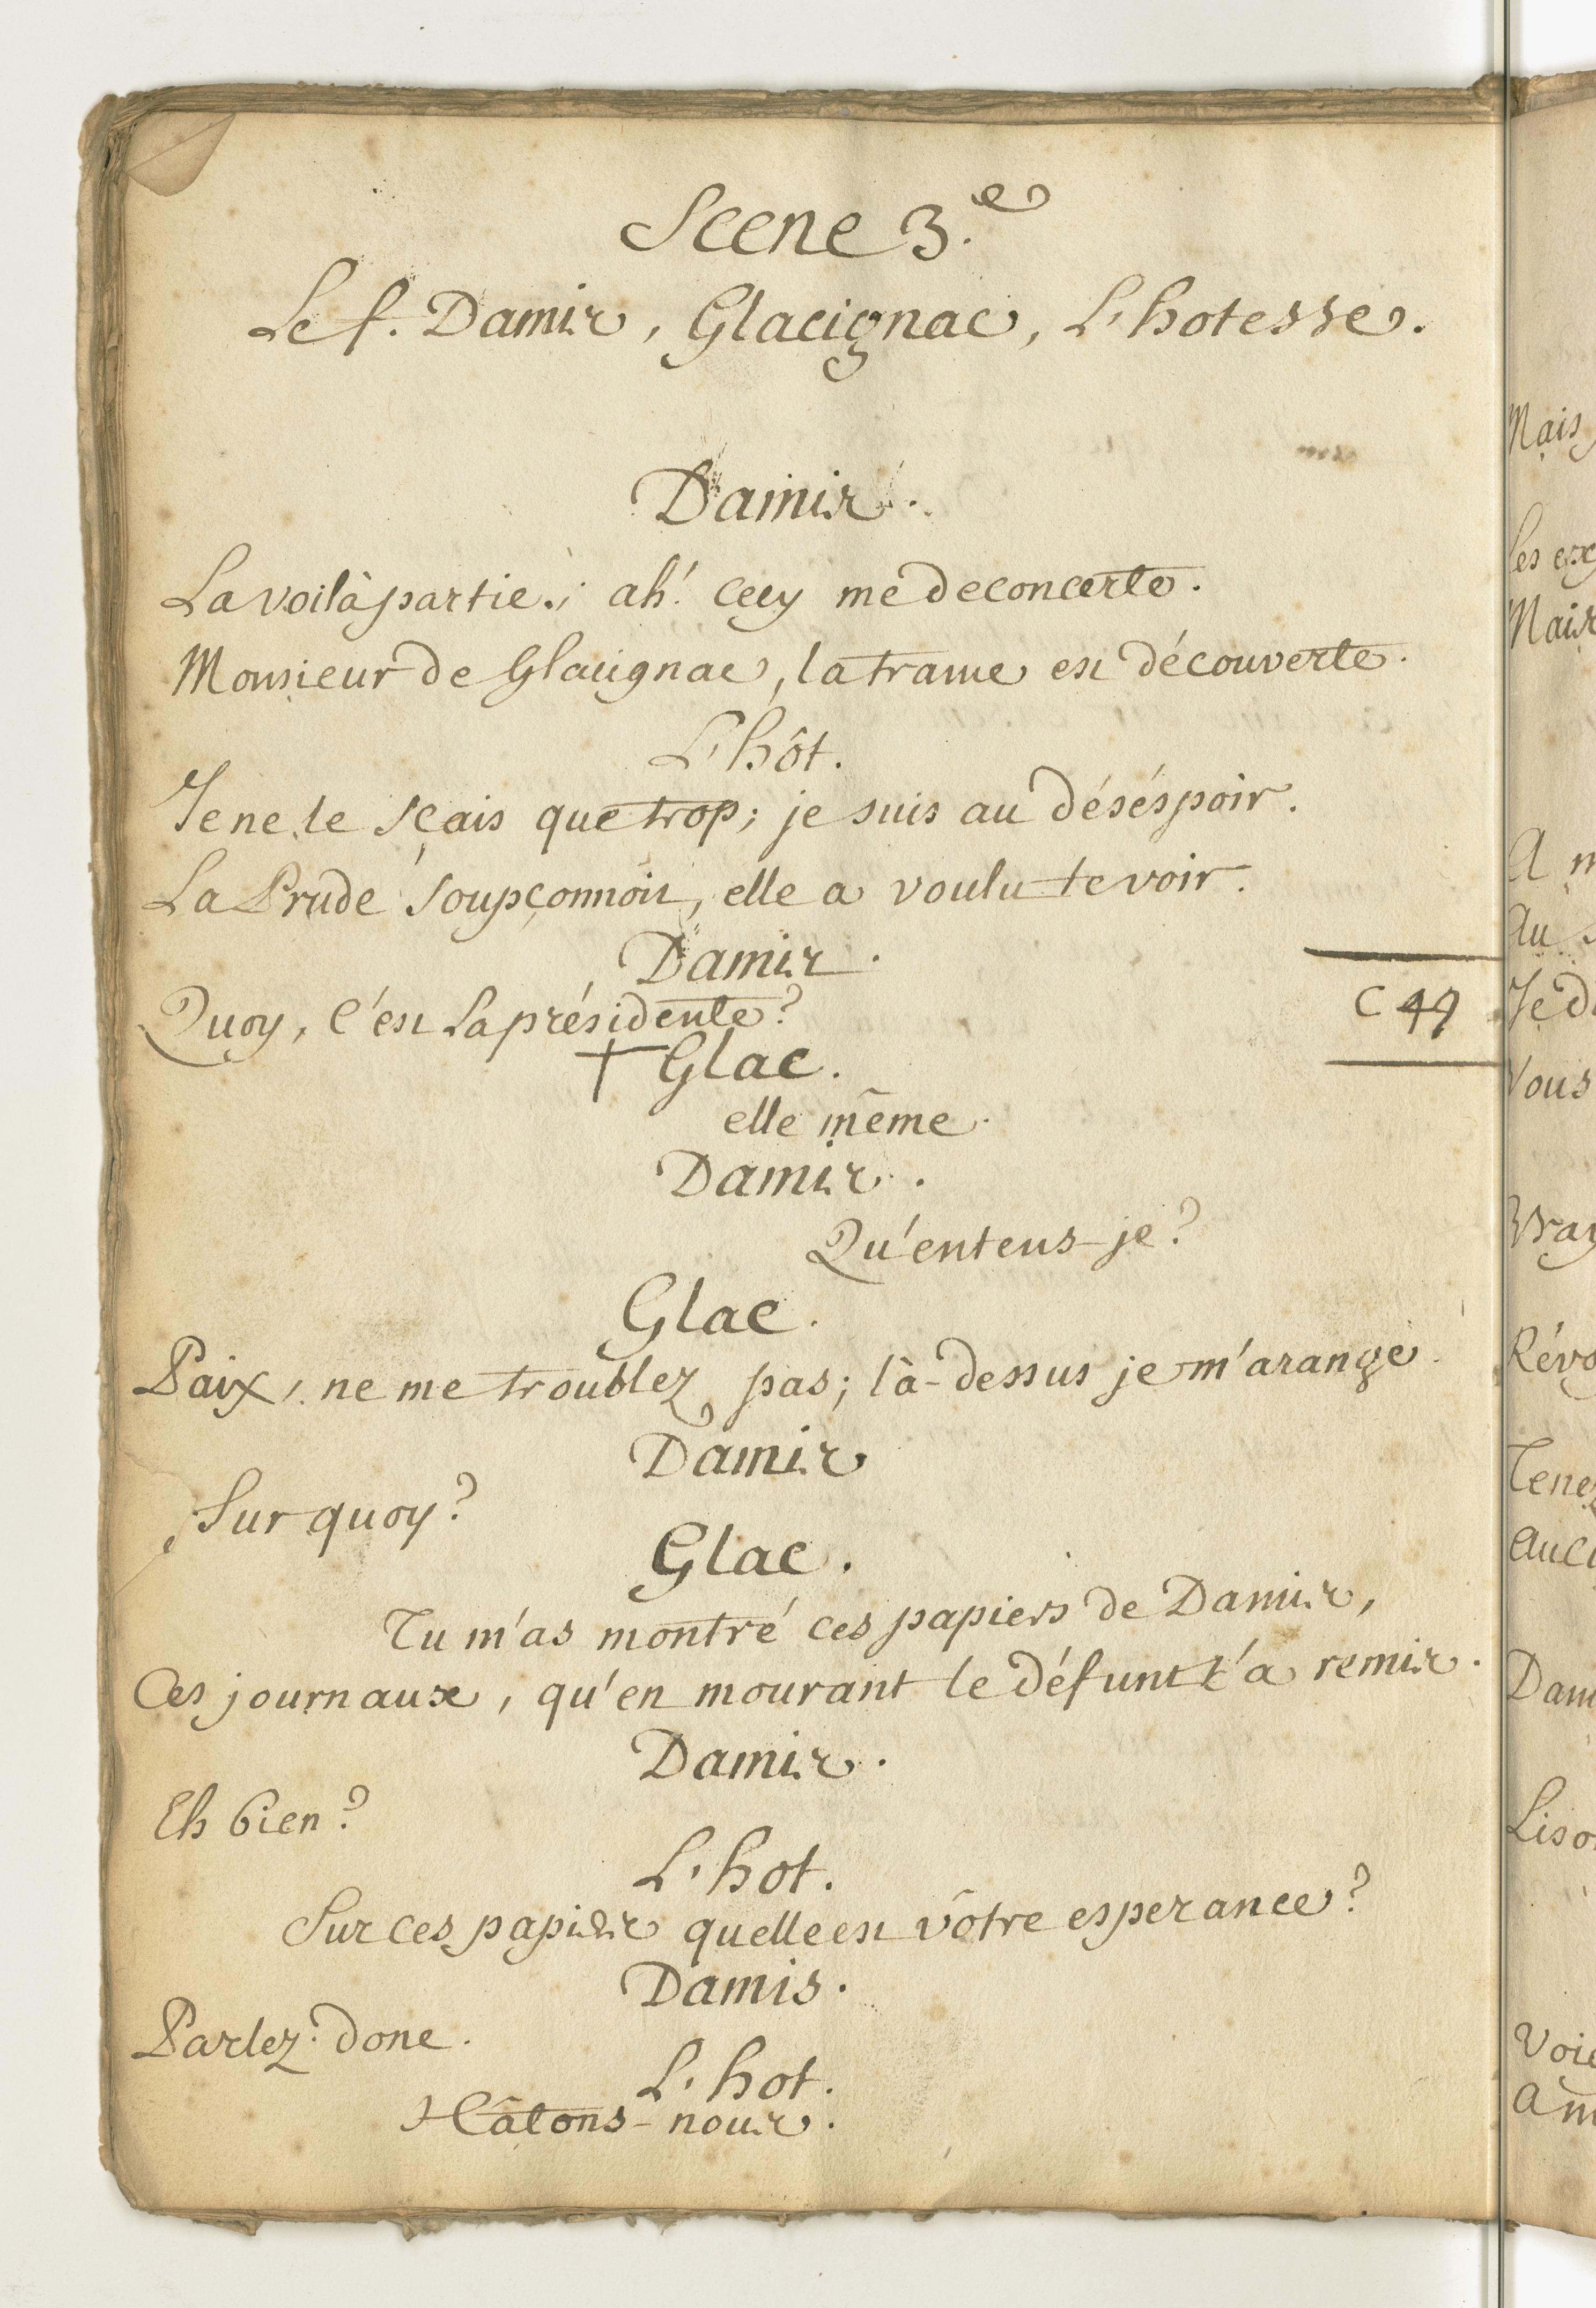 Scene 3.e
Le f. Damis, Glacignac, L'hotesse.
Damis.
La voilà partie; ah! cecy me deconcerte.
Monsieur de Glacignac, la trame est découverte.
L'hôt.
Je ne le sçais que trop; je suis au déséspoir.
La Prude soupçonnoit, elle a voulu te voir.
Damis.
Quoy, c'est la présidente?
C 49
+ Glac.
elle même.
Damis.
Qu'entens-je?
Glac.
Paix, ne me troublez pas; là-dessus je m'arange
Damis
Sur quoy?
Glac.
Tu m'as montré ces papiers de Damis,
Ces journaux, qu'en mourant le défunt t'a remis.
Damis.
Eh bien?
L'hot.
Sur ces papiers quelle est vôtre esperance?
Damis.
Parlez donc.
L'hot.
Hâtons-nous.
Mais
Les
Mais
A
Au
Je
Vous
Tenez